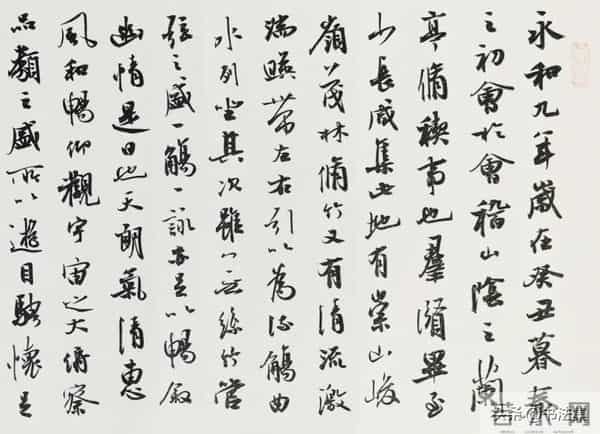 永和九年歲在癸丑暮春
之初會於會稽山陰之蘭
亭脩稧事也羣賢畢至
少長咸集此地有崇山峻
嶺茂林脩竹又有清流激
湍暎帶左右引以為流觴曲
水列坐其次雖無絲竹管
弦之盛一觴一詠亦足以暢敘
幽情是日也天朗氣清惠
風和暢仰觀宇宙之大俯察
品類之盛所以遊目騁懷足